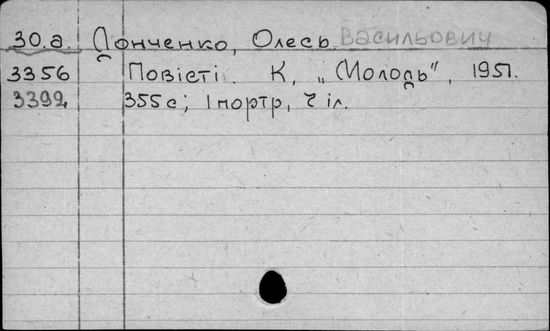 30.а. Донченко, Олесь Васильович
3356 Повісті. К, „Молодь", 1951.
3392 355 с; 1 портр, 7 іл.